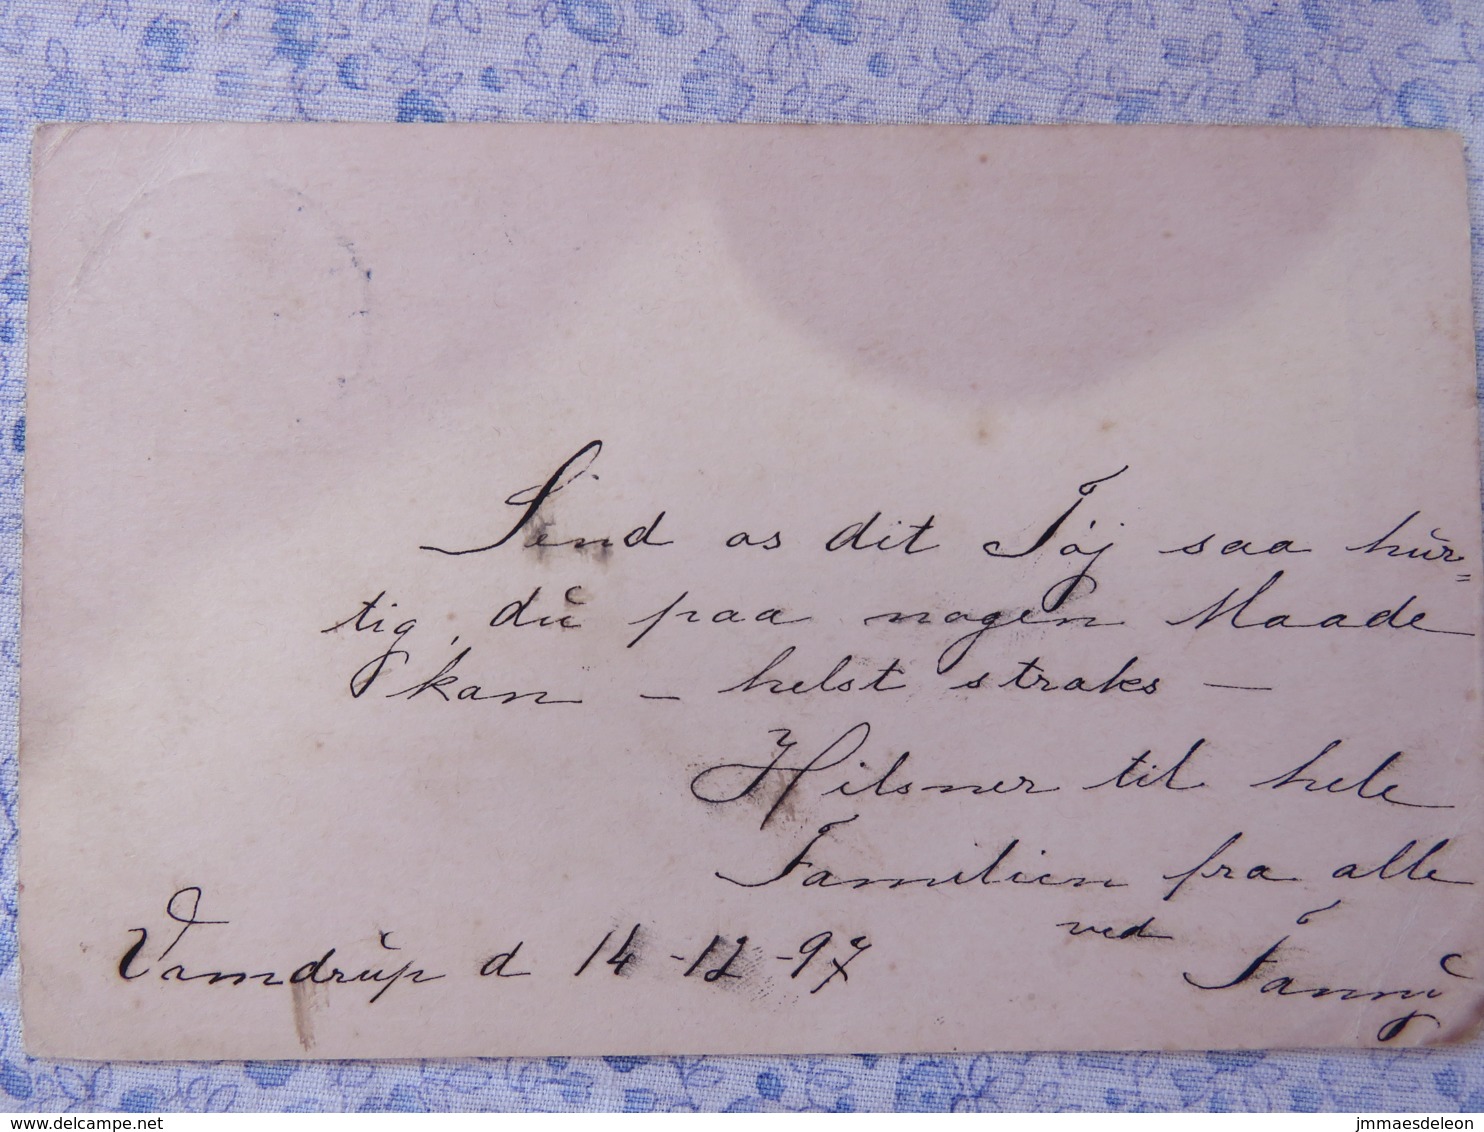 Send os dit Tøj saa hur=
tig, du paa nogen Maade
kan - helst straks -
Hilsner til hele
Familien fra alle
ved Fanny
Vamdrup d 14-12-97
www.delcampe.net
jmmaesdeleon